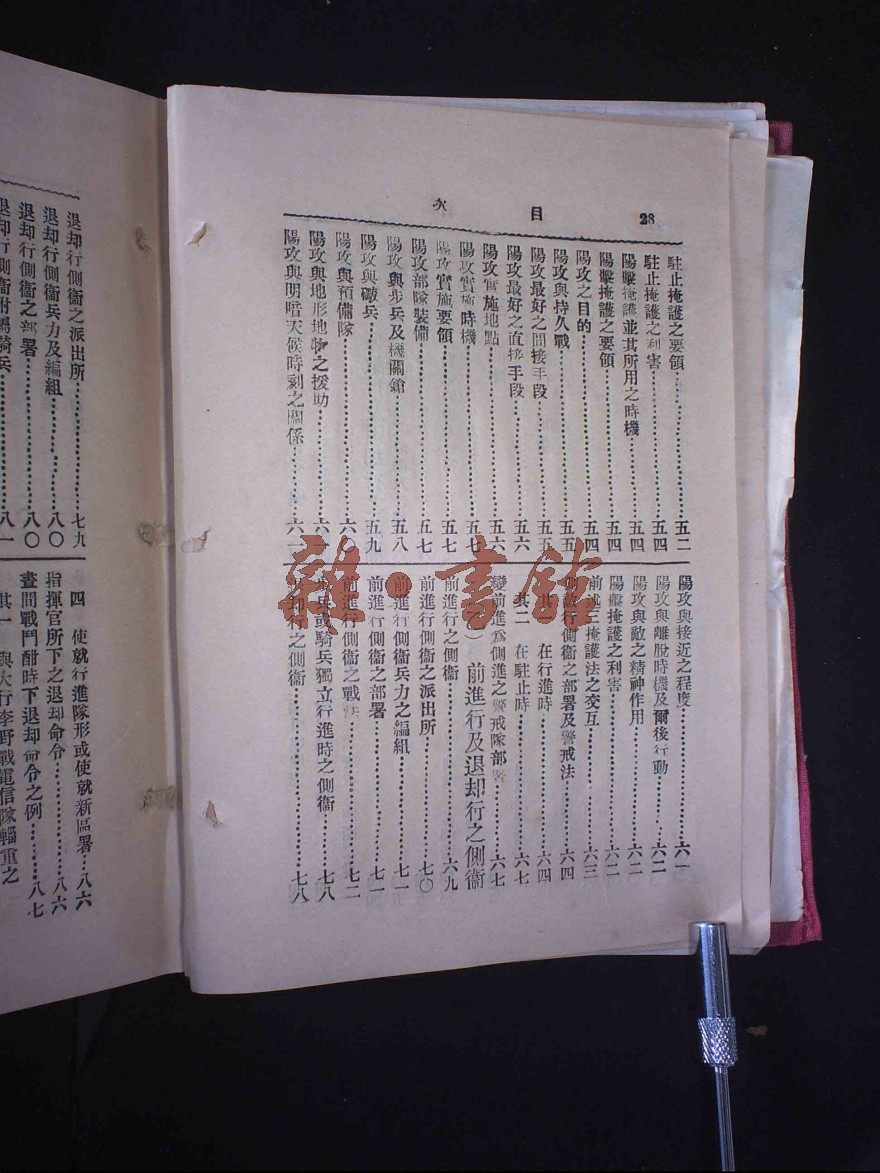 目次 28
駐止掩護之要領 五二
駐止掩護之利害 五四
陽擊掩護並其所用之時機 五四
陽擊掩護之要領 五四
陽攻之目的 五四
陽攻與持久戰 五五
陽攻最好之間接手段 五五
陽攻最好之直接手段 五六
陽攻實施地點 五六
陽攻實施時機 五七
陽攻實施要領 五七
陽攻部隊裝備 五七
陽攻與步兵及機關鎗 五八
陽攻與礮兵 五九
陽攻與預備隊 六〇
陽攻與地形地物之援助
陽攻與明暗天候時刻之關係
陽攻與接近之程度 六一
陽攻與離脫時機及爾後行動 六二
陽攻與敵之精神作用 六二
陽擊掩護之利害 六二
前述三掩護法之交互 六三
行側衞之部署及警戒法 六四
其一 在行進時 六四
其二 在駐止時 六七
變前進爲側進之警戒隊部署 六七
前進行及退却行之側衞
前進行之側衞 六九
前進行側衞之派出所 七〇
前進行側衞兵力之編組 七一
前進行側衞之部署 七一
前進行側衞之戰法 七二
兵或騎兵獨立行進時之側衞 七八
退却行之側衞 七八
退却行側衞之派出所 七九
退却行側衞兵力及編組 八〇
退却行側衞之部署 八〇
退却行側衞附屬騎兵 八一
四 使就行進隊形或使就新區署 八六
指揮官所下之退却命令 八六
晝間戰鬥酣時下退却命令之例 八七
其一 與大行李野戰電信隊輜重之
雜·書館